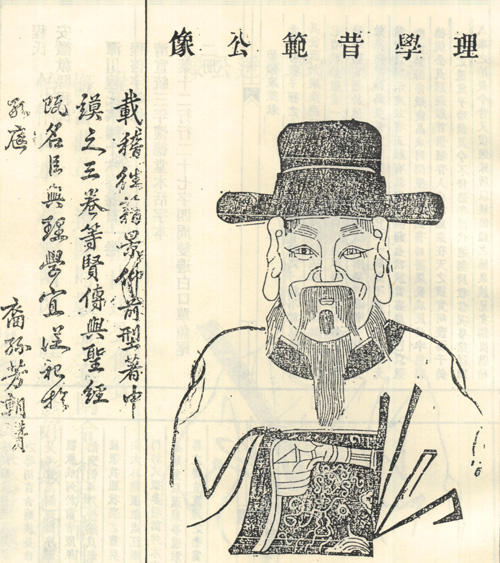 理學昔範公像
載稽往籍景仰前型著中
謨之三卷等賢傳與聖經
既名臣與理學宜從祀於
孔庭
裔孫芳朝